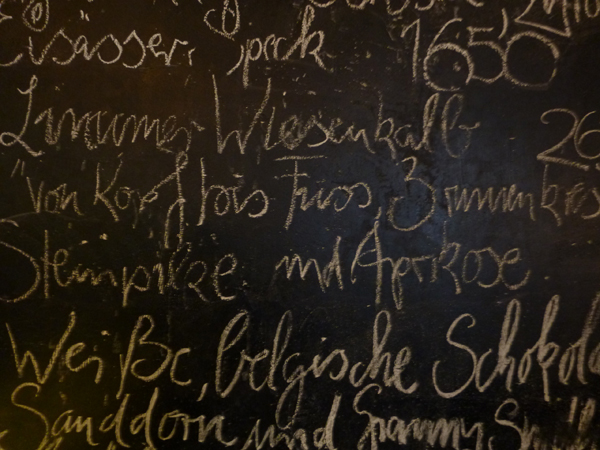 Elsässer Speck 16,50
Linumer Wiesenkalb 26
"Von Kopf bis Fuss, Brunnenkres
Steinpilze und Aprikose
Weiße, belgische Schokol
Sanddorn und